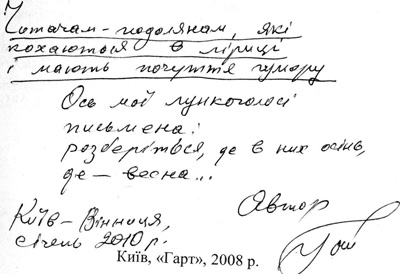 Читачам-подолянам, які
кохаються в ліриці
і мають почуття гумору
Ось мої лункоголосі
письмена:
розберіться, де в них осінь,
де – весна...
Автор
Київ-Вінниця,
січень 2010 р.
Київ, «Гарт», 2008 р.